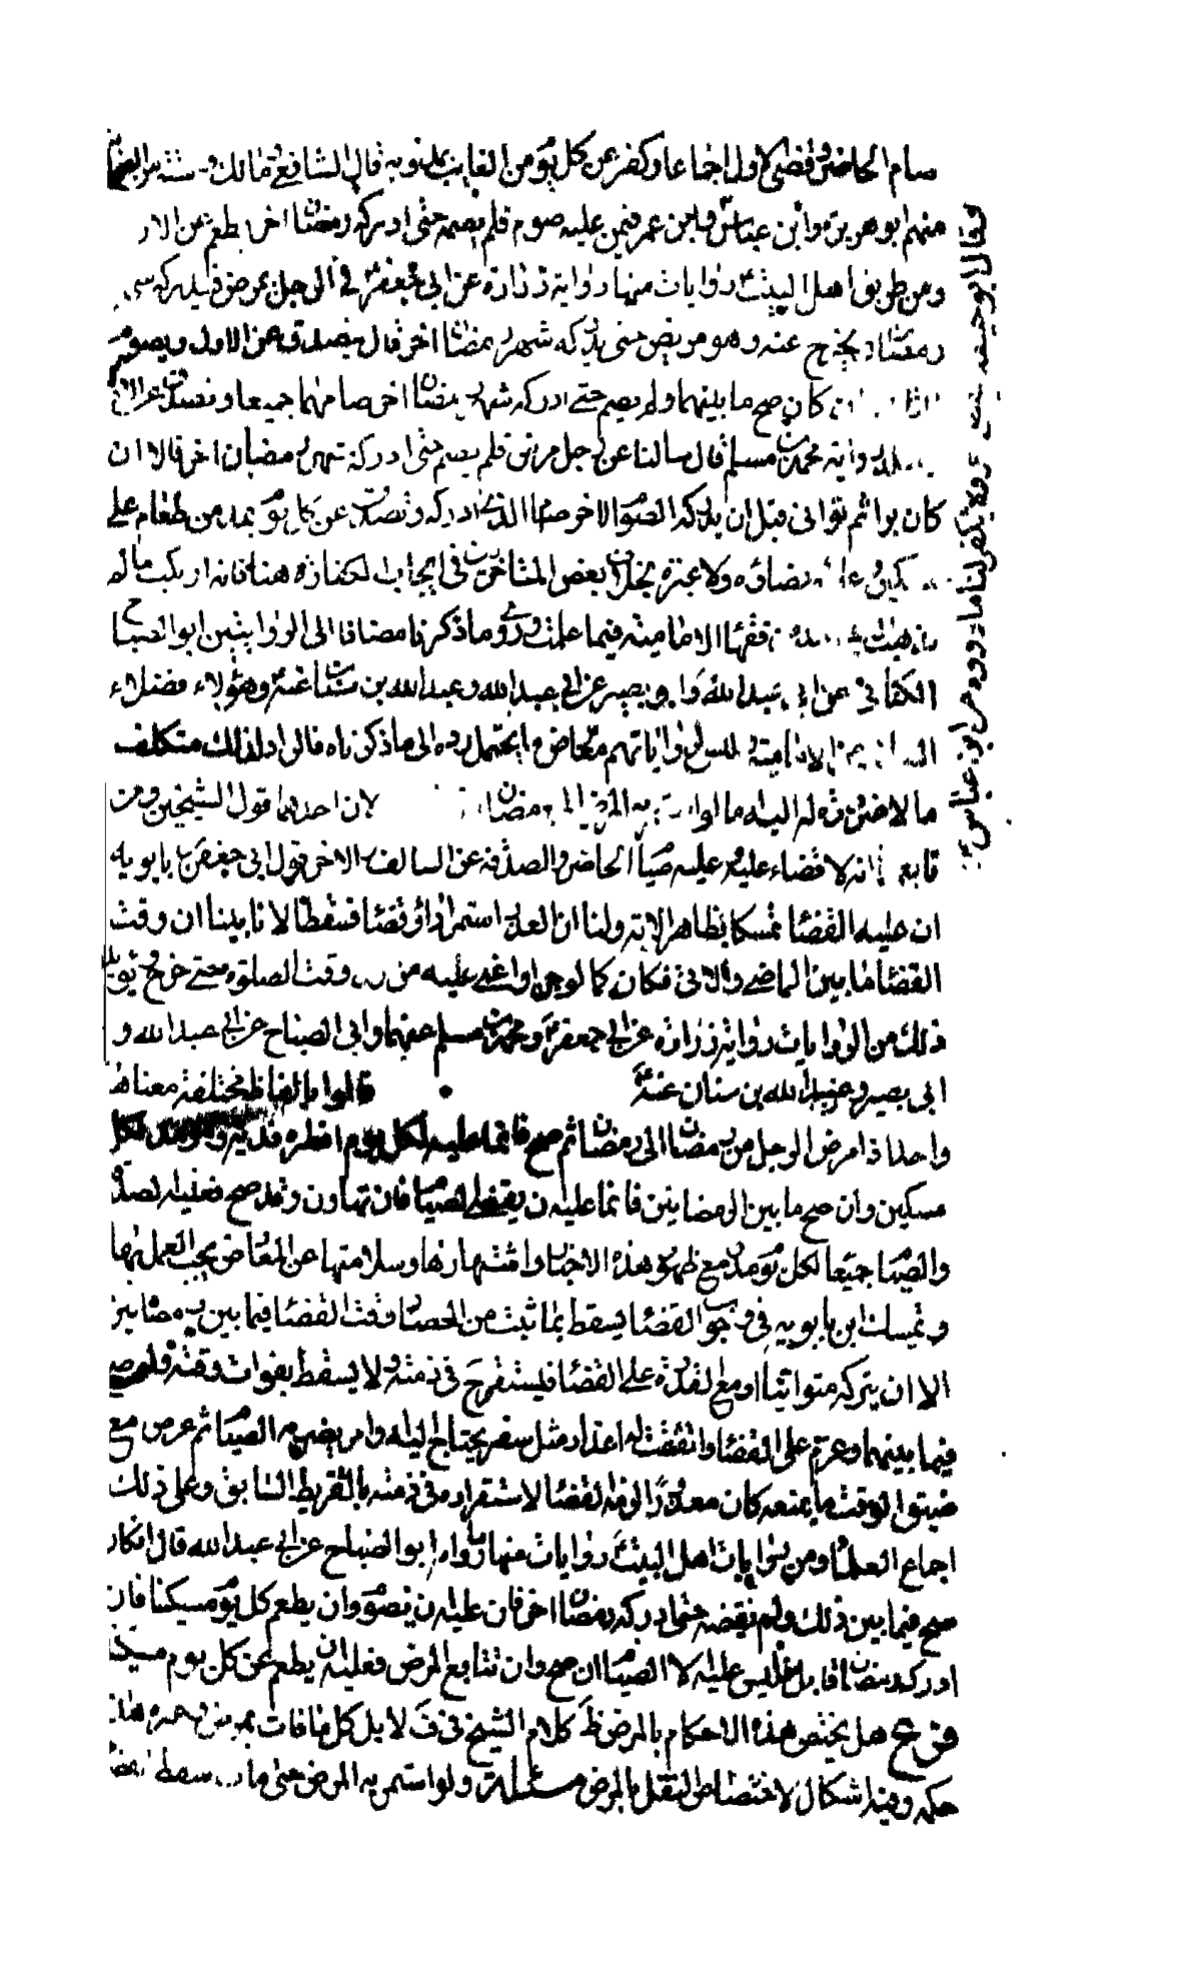 صام الحاضر وقضى الاول اجماعا وكفر عن كل يوم من الغايب بمد وبه قال الشافعي ومالك
منهم ابو هريرة وابن عباس وابن عمر فيمن عليه صوم فلم يصمه حتى ادركه رمضان اخر يطعم عن الاو
ومن طريق اهل البيت ع روايات منها رواية زرارة عن ابي جعفر ع في الرجل يمرض فيدركه شهر
رمضان ويخرج عنه وهو مريض حتى يدركه شهر رمضان اخر قال يتصدق عن الاول ويصوم
كان صح ما بينهما ولم يصم حتى ادركه شهر رمضان اخر صامهما جميعا وتصدق عن الاول
رواية محمد بن مسلم قال سالنا عن رجل مرض فلم يصم حتى ادركه شهر رمضان اخر قالا ان
كان برا ثم توانى قبل ان يدركه الصوم الاخر صام الذي ادركه وتصدق عن كل يوم بمد من طعام على
مسكين وعليه قضاؤه ولا عبرة بخلاف بعض المتاخرين في ايجاب الكفارة هنا فانه ارتكب ما لم
يذهب فقهاء الامامية فيما علمت وروى ما ذكرنا مضافا الى الروايتين ابو الصباح
الكناني عن ابي عبد الله ع وابو بصير عن ابي عبد الله وعبد الله بن سنان عنه ع وهؤلاء فضلاء
الامامية وليس لرواياتهم معارض وما يحتمل رده الى ما ذكرناه فالراد لذلك متكلف
ما لا ضرورة له اليه المرض الى رمضان لان احدهما قول الشيخين ومن
تابعهما انه لا قضاء عليه وعليه صيام الحاضر والصدقة عن السالف والاخر قول ابي جعفر بن بابويه
ان عليه القضاء تمسكا بظاهر الاية ولنا ان العذر استمر اداء وقضاء فسقطا لانا بينا ان وقت
القضاء ما بين الماضي والاتي فكان كما لو جن او اغمي عليه من وقت الصلوة حتى خرج ويؤيد
ذلك من الروايات رواية زرارة عن ابي جعفر ع ومحمد بن مسلم عنهما وابي الصباح عن ابي عبد الله و
ابي بصير وعبد الله بن سنان عنه ع قالوا بالفاظ مختلفة معناها
واحد اذا مرض الرجل من رمضان الى رمضان ثم صح فانما عليه لكل يوم افطره فدية وهو مد لكل
مسكين وان صح ما بين الرمضانين فانما عليه ان يقضي الصيام فان تهاون وقد صح فعليه الصدقة
والصيام جميعا لكل يوم مد مع ظهور هذه الاخبار واشتهارها وسلامتها عن المعارض يجب العمل بها
وتمسك ابن بابويه في وجوب القضاء يسقط بما ثبت من اختصاص وقت القضاء فيما بين رمضانين
الا ان يتركه متوانيا او مع القدرة على القضاء فيستقر ح في ذمته ولا يسقط بفوات وقته فلو صح
فيما بينهما وعزم على القضاء واتفقت له اعذار مثل سفر يحتاج اليه وامر يضر به الصيام ثم عرض مع
ضيق الوقت ما يمنعه كان معذورا لزمه القضاء لاستقراره في ذمته بالتفريط السابق وعلى ذلك
اجماع العلماء ومن روايات اهل البيت ع روايات منها ما رواه ابو الصباح عن ابي عبد الله قال ان كان
صح فيما بين ذلك ولم يقضه حتى ادركه رمضان اخر فان عليه ان يصوم وان يطعم كل يوم مسكينا فان
ادركه رمضان قابل فليس عليه الا الصيام ان صح وان تتابع المرض فعليه ان يطعم عن كل يوم مسكينا
فرع هل يختص هذه الاحكام بالمرض ظ كلام الشيخ في ف لا بل كل ما فات بمرض او غيره هذا
حكمه وفيه اشكال لاختصاص النقل بالمرض مسئلة ولو استمر به المرض حتى مات سقط القضا
وقال ابو حنيفة يقضي ولا يكفر لنا ما رووه عن ابن عباس